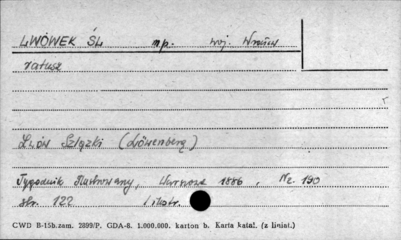 LWÓWEK ŚL mp. woj. Wrocław
ratusz
Lwów Szlązki (Löwenberg)
Tygodnik Ilustrowany, Warszawa 1886, Nr. 190
str. 122 1 ilustr.
CWD B-15b. zam. 2899/P. GDA-8. 1.000.000. karton b. Karta katal. (z liniat.)